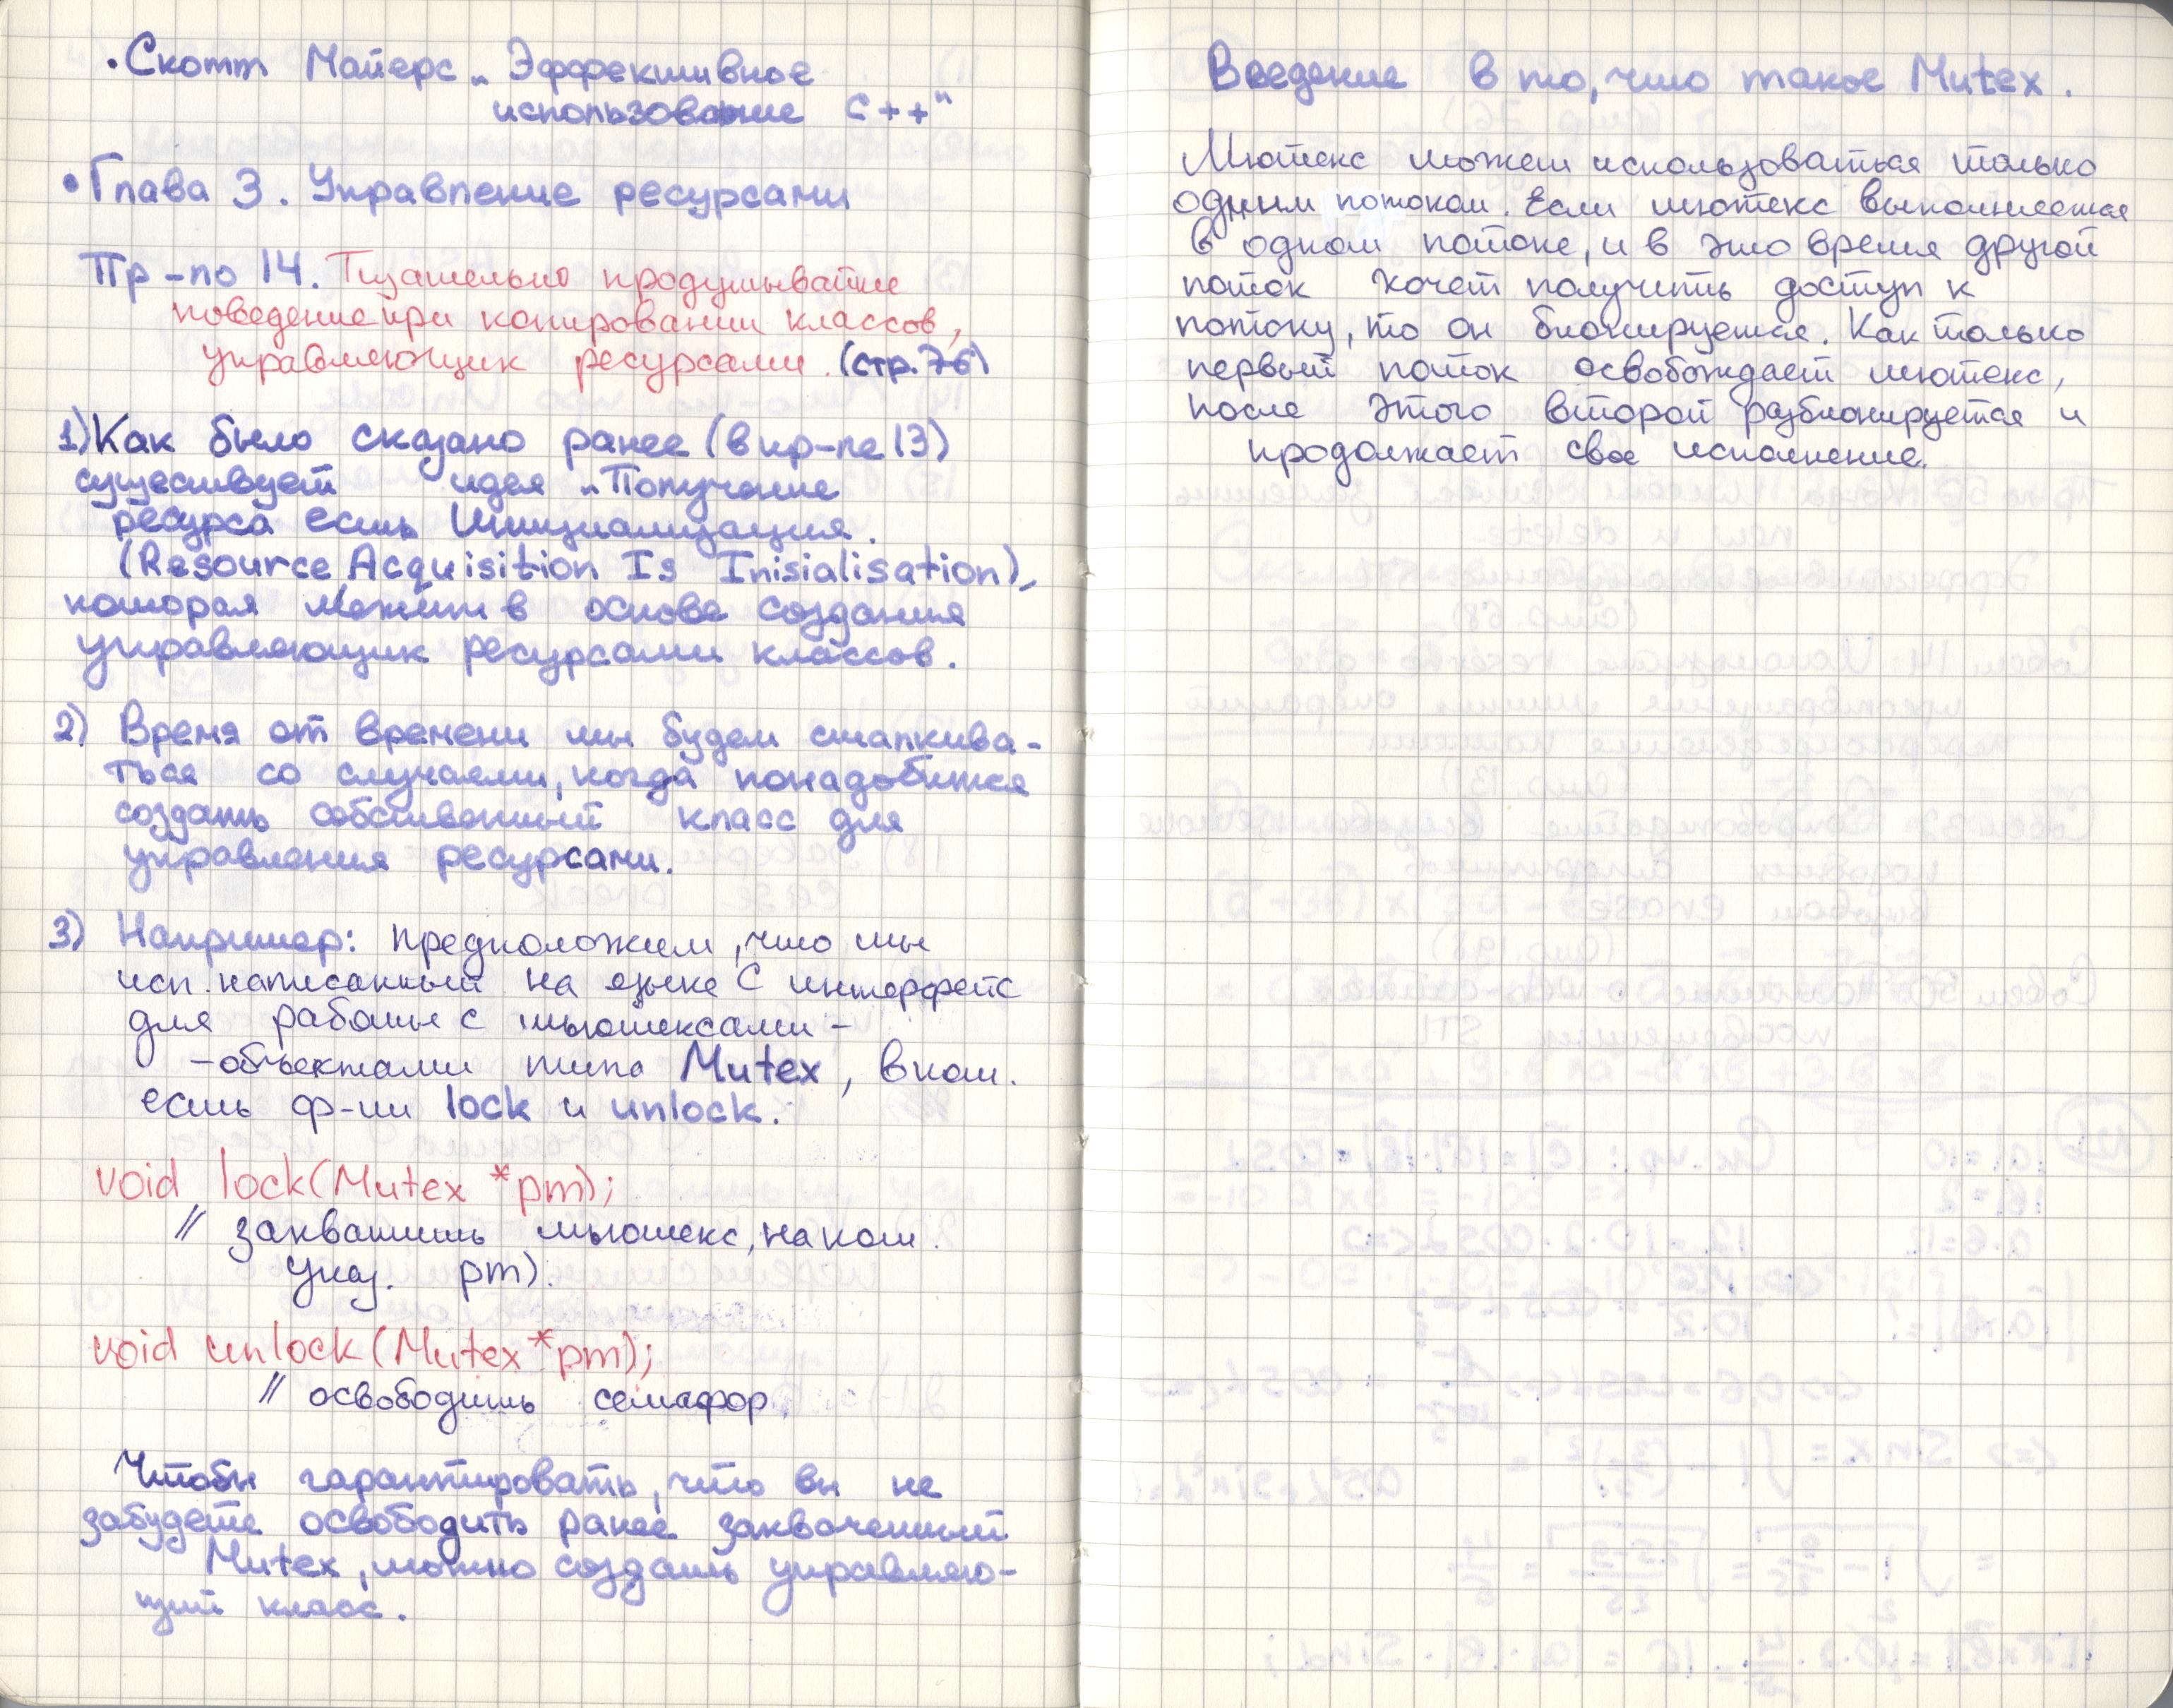 • Скотт Майерс „Эффективное
использование С++"
• Глава 3. Управление ресурсами
Пр-ло 14. Тщательно продумывайте
поведение при копировании классов,
управляющих ресурсами. (стр. 76)
1) Как было сказано ранее (в пр-ле 13)
существует идея „Получение
ресурса есть Инициализация.
(Resource Acquisition Is Inisialisation),
которая лежит в основе создания
управляющих ресурсами классов.
2) Время от времени мы будем сталкива-
ться со случаями, когда понадобится
создать собственный класс для
управления ресурсами.
3) Например: предположим, что мы
исп. написанный на языке С интерфейс
для работы с мьютексами -
- объектами типа Mutex, в кот.
есть ф-ии lock и unlock.
void lock(Mutex *pm);
// захватить мьютекс, на кот.
указ. pm).
void unlock(Mutex *pm);
// освободить семафор.
Чтобы гарантировать, что вы не
забудете освободить ранее захваченный
Mutex, можно создать управляю-
щий класс.
Введение в то, что такое Mutex.
Мютекс может использоваться только
одним потоком. Если мютекс выполняется
в одном потоке, и в это время другой
поток хочет получить доступ к
потоку, то он блокируется. Как только
первый поток освобождает мютекс,
после этого второй разблокируется и
продолжает свое исполнение.